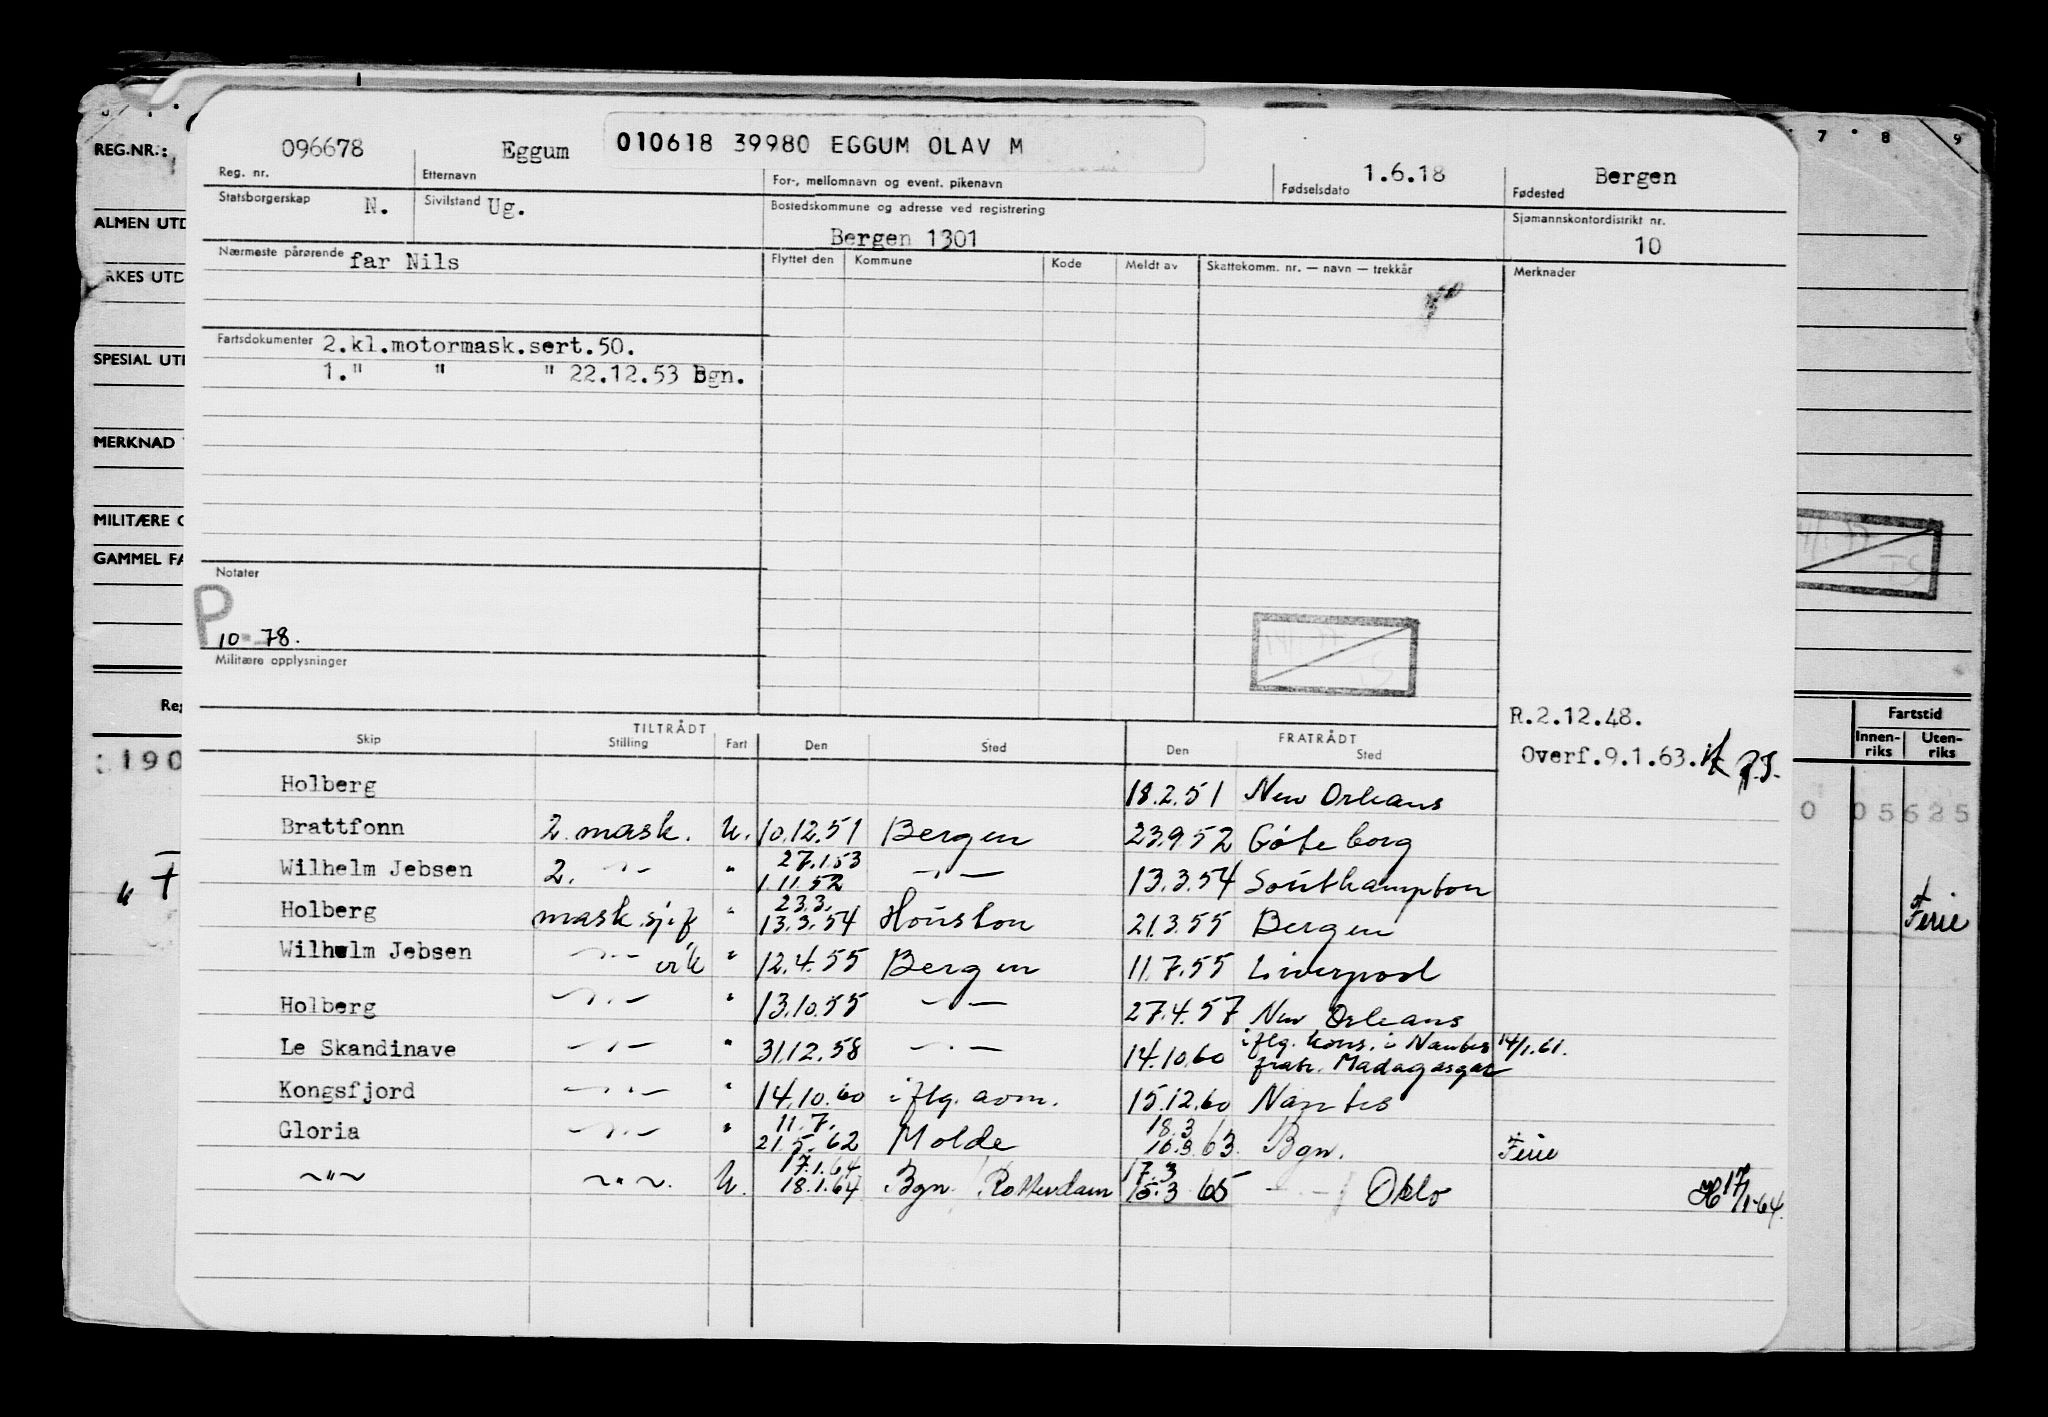 REG.NR.:
ALMEN UTD
RKES UTD
SPESIAL UTI
MERKNAD
MILITÆRE
GAMMEL FA
7 8 9
096678 Eggum 010618 39980 EGGUM OLAV M 1.6.18 Bergen
Reg. nr. Etternavn For-, mellomnavn og event. pikenavn Fødselsdato Fødested
Statsborgerskap N. Sivilstand Ug. Bostedskommune og adresse ved registrering Sjømannskontordistrikt nr.
Bergen 1301 10
Nærmeste pårørende far Nils Flyttet den Kommune Kode Meldt av Skattekomm. nr. — navn — trekkår Merknader
Fartsdokumenter 2.kl.motormask.sert.50.
1." " " 22.12.53 Bgn.
Notater
P
10-78.
Militære opplysninger
R.2.12.48.
Overf.9.1.63.
TILTRÅDT FRATRÅDT
Skip Stilling Fart Den Sted Den Sted
Fartstid
Innen-riks Uten-riks
190
0 05625
Holberg 18.2.51 New Orleans
Brattfonn 2. mask. U. 10.12.51 Bergen 23.9.52 Göteborg
27.1.53
Wilhelm Jebsen 2. -"- " 1.11.52 -"- 13.3.54 Southampton
23.3.
Holberg mask.sjef " 13.3.54 Houston 21.3.55 Bergen
Wilhelm Jebsen -"- vik " 12.4.55 Bergen 11.7.55 Liverpool
Holberg -"- " 13.10.55 -"- 27.4.57 New Orleans
Le Skandinave -"- " 31.12.58 -"- 14.10.60 iflg. kons. i Nantes 14/1.61.
fratr. Madagasgar
Kongsfjord -"- " 14.10.60 iflg. aom. 15.12.60 Nantes
11.7. 18.3
Gloria -"- " 21.5.62 Molde 16.3.63. Bgn. Ferie
17.1.64 17.3
-"- -"- U. 18.1.64 Bgn. / Rotterdam 15.3 65 -"- / Oslo 17/1-64.
Ferie